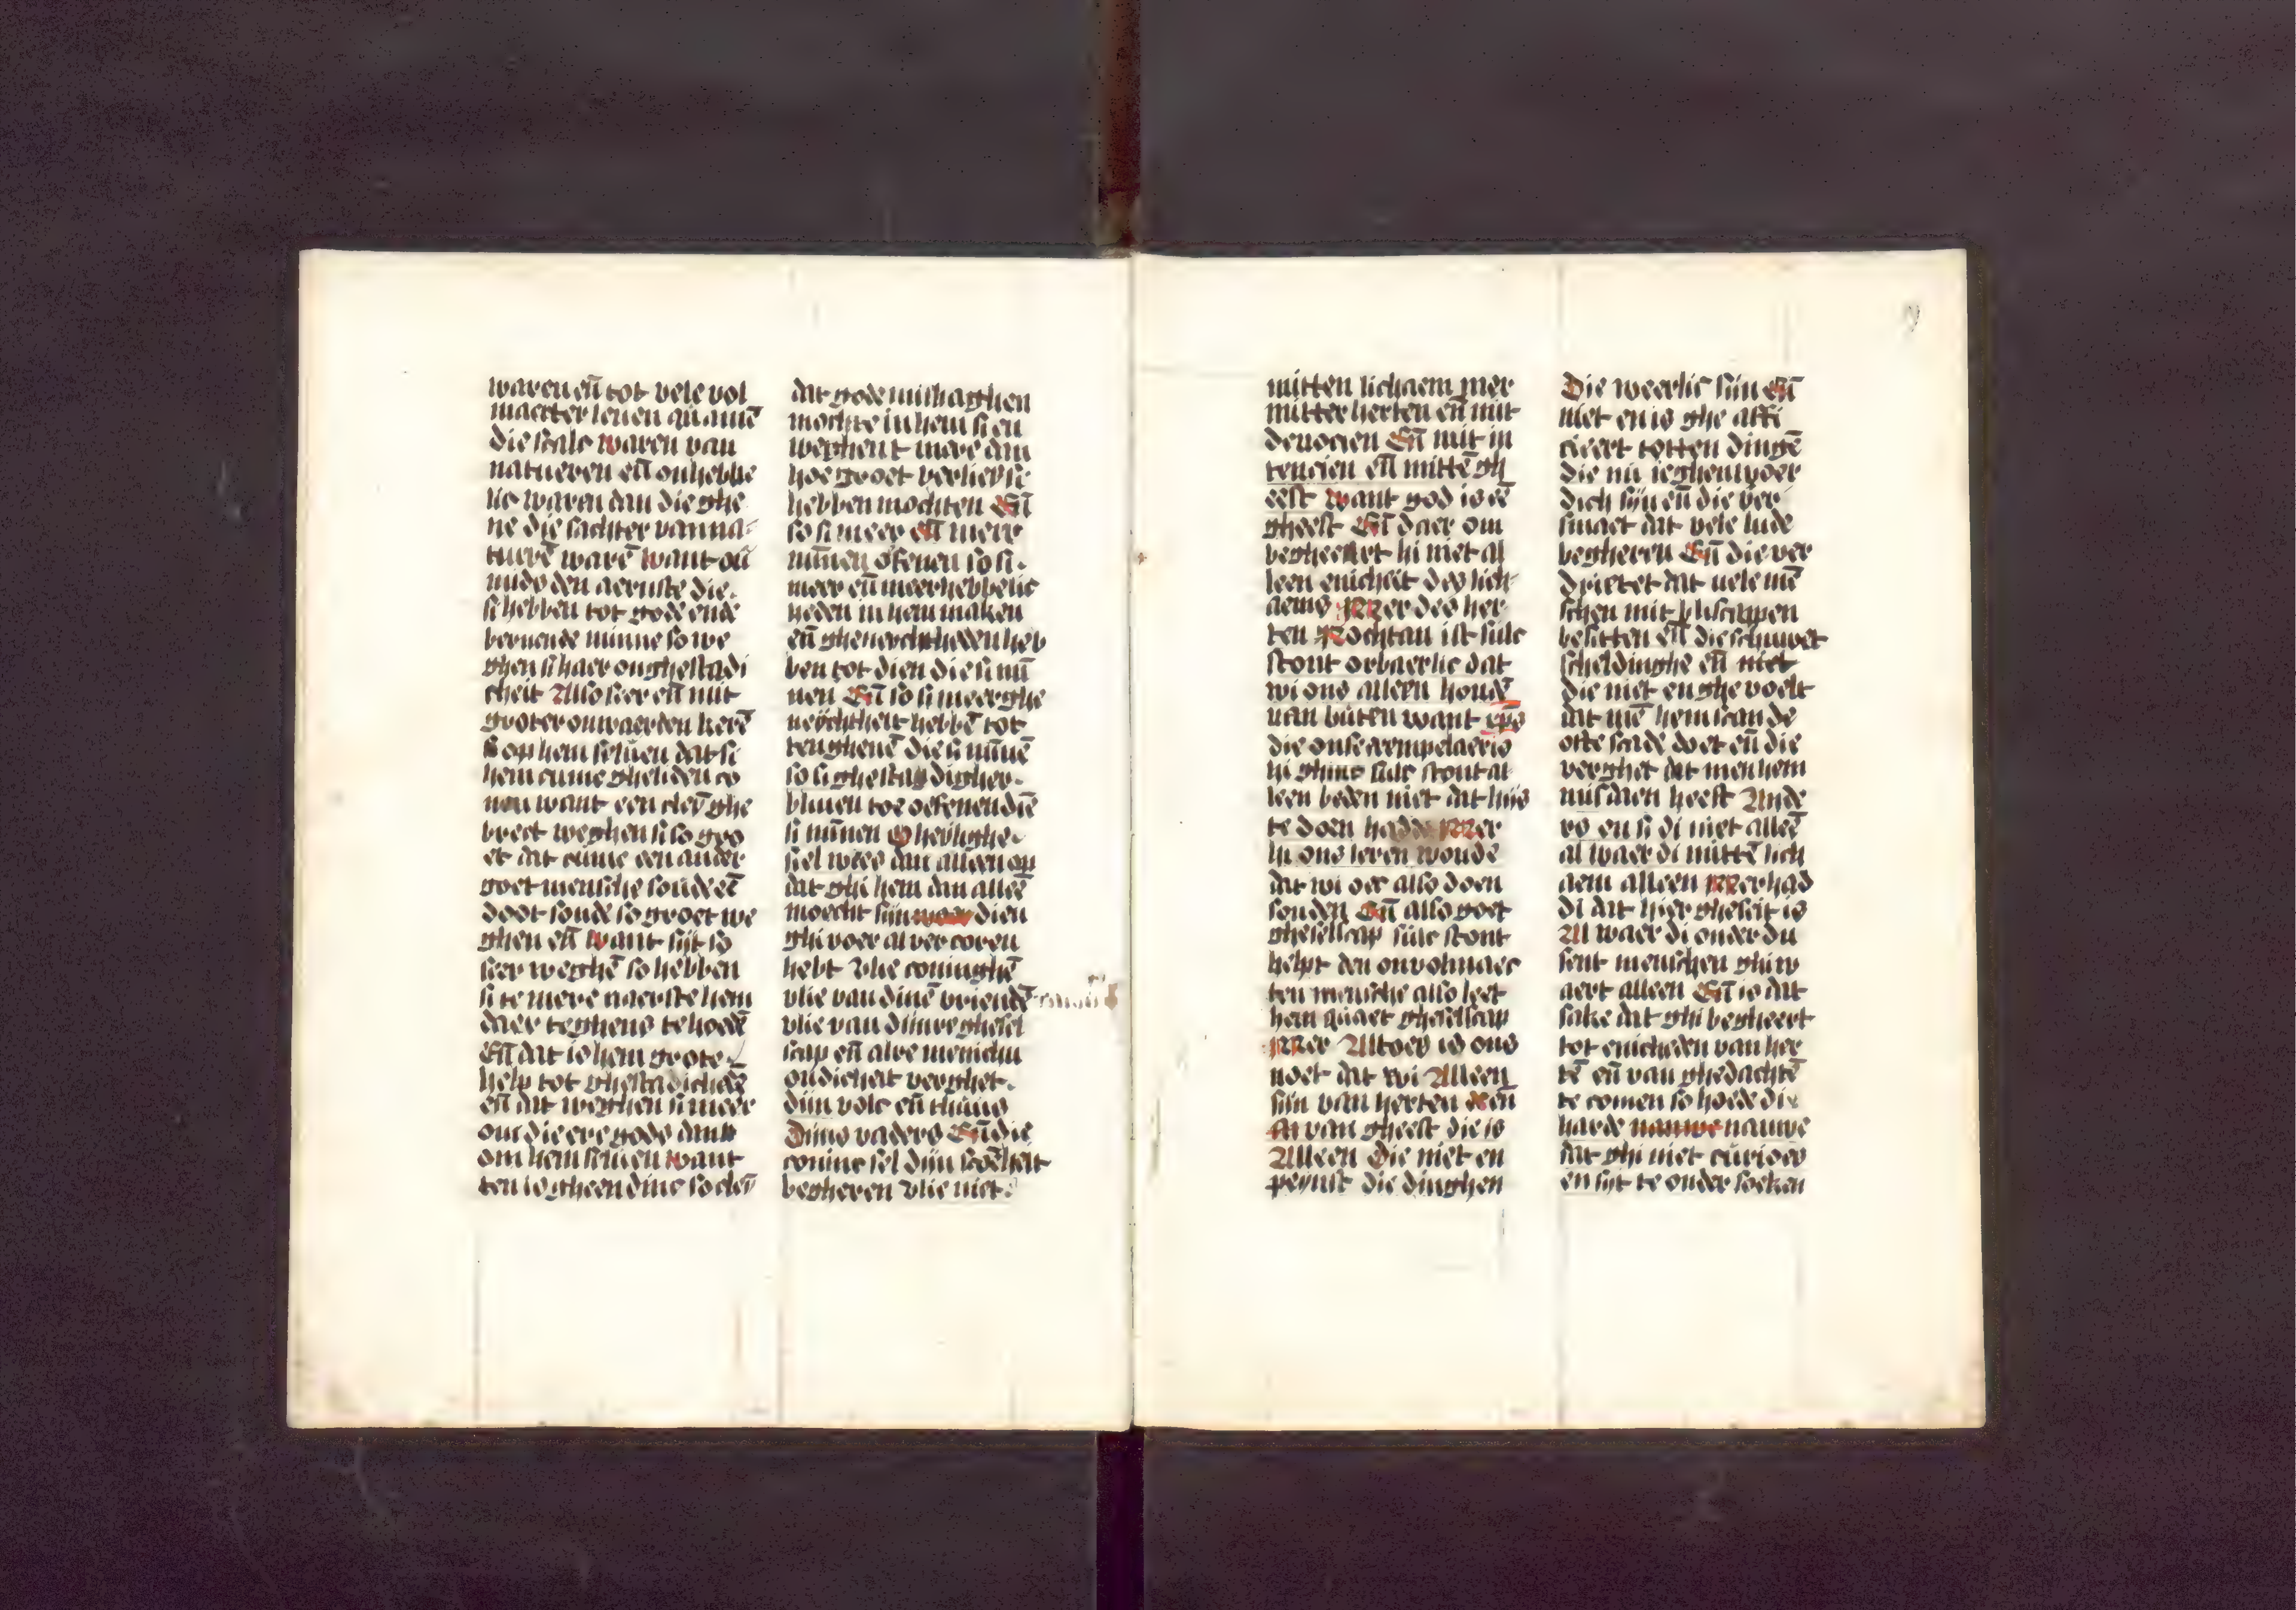 waren en̄ tot vele vol
maecter leuen quamē
die scalc waren van
natueren en̄ onhebbe
lic waren dan die ghe
ne die sachter van na-
tuerē warē want ou
mids den aernste die.
si hebben tot gode ende
bernende minne so we
ghen si haer onghestadi
cheit Also seer en̄ mit
groter onwaerden kerē
si op hem seluen dat si
hem cume ghelidē co
nen want een cleī ghe
brect weghen si so gro
et dat cume een ander
goet mensche soude eē
doot sonde so groet we
ghen en̄ want sijt so
seer weghē so hebben
si te mere naerste hem
daer teghens te hodē
En̄ dat is hem grote
help tot ghestadichede
en̄ dat weghen si meer
om die ere gods dan
om hem seluen want
ten is gheen dinc so cleī
dat gode mishaghen
mochte in hem si en
weghent mere dan
hoe groet verlies si
hebben mochten En̄
so si meer en̄ meer
mīnen ofenen so si.
meer en̄ meer hebbelic
heden in hem maken
en̄ gheneychtheden heb
ben tot dien die si mī
nen En̄ so si meer ghe
neychtheit hebbē tot
ten ghenē die si mīnē
so si ghestadigher.
bliuen toe oefenen diē
si mīnen O heylighe.
siel wes dan alleen op
dat ghi hem dan alleē
moecht sijn dien
ghi voer al vercoren
hebt vlie coninghē
vlie van dinē vriendē
vlie van dijnre ghesel
scap en̄ alre menichu
oudicheit verghet.
dijn volc en̄ thuus
dijns vaders En̄ die
coninc sel dijn scoēheit
begheren vlie niet.
mitten lichaem mer
mitter herten en̄ mit
deuocien En̄ mit in
tencien en̄ mittē gh
eest want god is eē
gheest En̄ daer om
begheert hi niet al
leen enicheit des lich-
aems Mer des her
ten Nochtan ist sulc
stont orbaerlic dat
wi ons alleen houdē
van buten want xp̄s
die onse exempelaer is
hi ghinc sulc stont al
leen beden niet dat hijs
te doen hadde Mer
hi ons leren woude
dat wi oec also doen
souden En̄ also goet
ghesellscap sulc stont
helpt den onvolmaec
ten mensche also leet
hem quaet ghesellscap
Mer Altoes is ons
noet dat wi Alleen
sijn van herten en̄
van gheest die is
Alleen Die niet en
peynst die dinghen
Die weerlic sijn en̄
niet en is ghe affi
cieert totten dingē
die nu ieghenwoer
dich sijn en̄ die ver
smaet dat vele lude
begheren En̄ die ver
drietet dat uele mē
schen mit bliscappen
besitten en̄ die schuwet
scheldinghe en̄ niet
die niet en ghe voelt
dat mē hem scande
ofte scade doet en̄ die
verghet dat men hem
misdaen heeft Ande
rs en si di niet alleē
al waer di mittē lich
aem alleen Mer had
di dat hier gheseit is
Al waer di onder du
sent menschen ghi w
aert alleen En̄ is dat
sake dat ghi begheert
tot enicheden van her
tē en̄ van ghedachtē
te comen so hoede di
harde nauwe nauwe
dat ghi niet curioes
en sijt te onder soeken